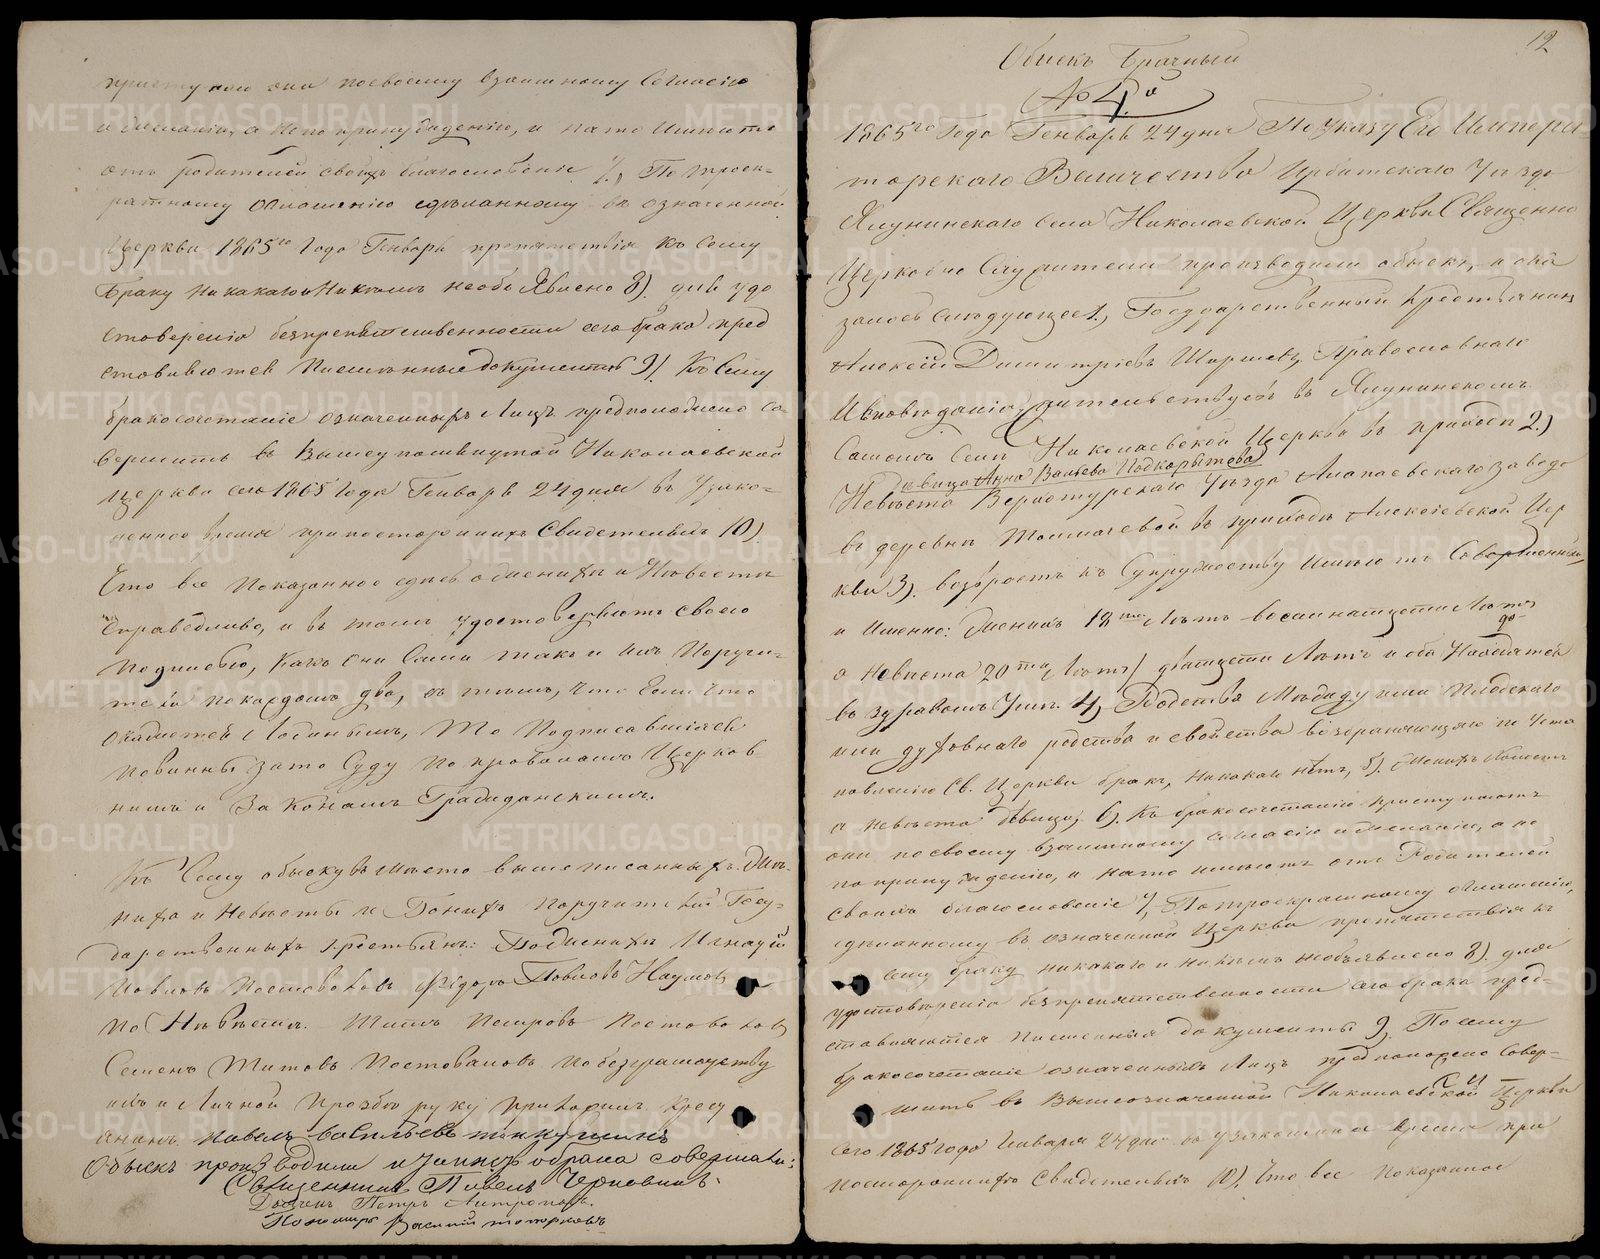 приступаютъ они по своему взаимному согласію
и желанію, а не по принужденію, и на то имѣютъ
отъ родителей своихъ благословеніе 7., По троек-
ратному оглашенію сдѣланному въ означенной
Церкви 1865го Года Генваря препятствія къ сему
браку никакого и никѣмъ необъявлено 8). для удо
стоверенія безпрепятственности сего брака пред
ставляются писменные документы 9). Къ сему
бракосочетаніе означенныхъ лицъ предположено со-
вершить въ вышеупомянутой Николаевской
церкви сего 1865 Года Генваря 24 дня въ узако-
ненное время при постороннихъ свидетеляхъ 10)
Что все показанное здесь о женихѣ и невѣстѣ
справедливо, и въ томъ удостоверяютъ своею
подписью, какъ они сами такъ и ихъ поручи-
тели по каждомъ два, съ тѣмъ, что если что
окажется ложнымъ, то подписавшіяся
повинны за то суду по правиламъ Церков
нымъ и законамъ Гражданскимъ.
Къ сему обыску вмѣсто вышеписанныхъ Же-
ниха и Невѣсты и ихъ поручителей Госу-
дарственныхъ крестьянъ: По женихѣ Игнатій
Павловъ Постоваловъ Фёдоръ Павловъ Наумовъ
По Невѣстѣ. Титъ Петровъ Постоваловъ
Семенъ Титовъ Постоваловъ по безграмотству
ихъ и личной прозбѣ руку приложилъ крест
янинъ Павелъ Васильевъ
Обыскъ производили и записъ обрака совершали:
Священникъ Павелъ Черновинъ.
Дьячекъ Петръ
Пономарь Василій Топорковъ
12
Обыскъ Брачный
№ 4й
1865го Года Генваря 24 дня По Указу Его Импера
торскаго Величества Ирбитскаго Уѣзда
Ялунинскаго села Николаевской Церкви Священно
Церковно Служители производили обыскъ, и ока
залось следующее 1., Государственный Крестьянинъ
Алексѣй Димитріевъ Ширшевъ, Православнаго
Исповѣданія, жительствуетъ въ Ялунинскомъ
Самомъ селѣ Николаевской Церкви въ приходѣ 2.)
девица Анна Васильева Подкорытова
Невѣста Верхотурскаго Уѣзда Алапаевскаго завода
въ деревнѣ Толмачевой въ приходѣ Алексѣевской Цер
кви 3). возрастъ къ Супружеству имѣютъ Совершенный
и Именно: Женихъ 18ть Лѣтъ восемнатцети лѣтъ
а Невѣста 20ти Лѣтъ/ дватцети Лѣтъ и оба Находятся
въ здравомъ Умѣ. 4) Родства Между ими плотскаго
или духовнаго родства и свойства возбраняющаго по Уста
новленію Св. Церкви бракъ, никакого нѣтъ, 5). Женихъ холостъ
а невѣста девица; 6). Къ бракосочетанію приступаютъ
они по своему взаимному согласію и желанію, а не
по принужденію, и на то имеютъ отъ Родителей
своихъ благословеніе 7, По троекратному оглашенію,
сдѣланному въ означенной Церкви препятствія къ
сему браку никакого и никѣмъ необъявлено 8). для
удостоверенія безпрепятственности сего брака пред-
ставляются писменныя документы 9, По сему
бракосочетаніе означенныхъ лицъ предположено совер-
шить въ вышеозначенной Николаевской Церкви
сего 1865 года Января 24 дня въ узаконенное время при
постороннихъ свидетеляхъ 10), Что все показанное